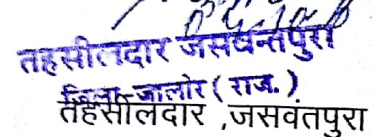 तहसीलदार जसवन्तपुरा
जिला-जालोर (राज.)
तहसीलदार ,जसवंतपुरा